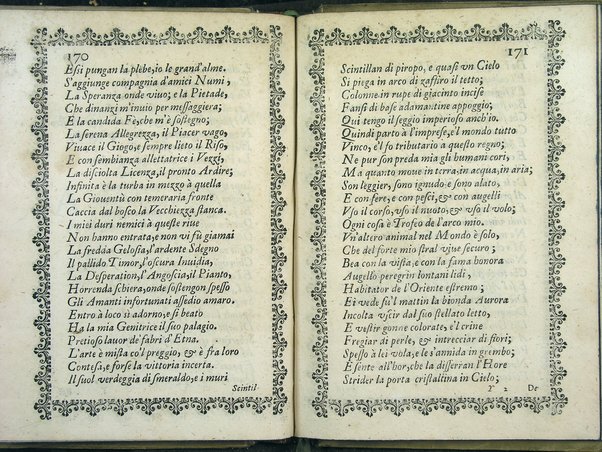 170
Essi pungan la plebe, io le grand'alme.
S'aggiunge compagnia d'amici Numi,
La Speranza onde viuo; e la Pietade,
Che dinanzi m'inuio per messaggiera;
E la candida Fè, che m'è sostegno;
La serena Allegrezza, il Piacer vago,
Viuace il Giogo, e sempre lieto il Riso,
E con sembianza allettatrice i Vezzi,
La disciolta Licenza, il pronto Ardire;
Infinita è la turba in mezzo à quella
La Giouentù con temeraria fronte
Caccia dal bosco la Vecchiezza stanca.
I miei duri nemici à queste riue
Non hanno entrata, e non vi fû giamai
La fredda Gelosia, l'ardente Sdegno
Il pallido Timor, l'oscura Inuidia,
La Desperation, l'Angoscia, il Pianto,
Horrenda schiera, onde sostengon spesso
Gli Amanti infortunati assedio amaro.
Entro à loco sì adorno, e sì beato
Ha la mia Genitrice il suo palagio.
Pretioso lauor de fabri d'Etna.
L'arte è mista co'l preggio, & è fra loro
Contesa, e forse la vittoria incerta.
Il suol verdeggia di smeraldo, e i muri
Scintil-
171
Scintillan di piropo, e quasi vn Cielo
Si piega in arco di zaffiro il tetto;
Colonne in rupe di giacinto incise
Fansi di base adamantine appoggio;
Qui tengo il seggio imperioso anch'io.
Quindi parto à l'imprese, e'l mondo tutto
Vinco, e'l fo tributario a questo regno;
Ne pur son preda mia gli humani cori,
Ma quanto moue in terra, in acqua, in aria;
Son leggier, sono ignudo e sono alato,
E con fere, e con pesci, & con augelli
Vso il corso, vso il nuoto, & vso il volo;
Ogni cosa è Trofeo de l'arco mio.
Vn'altero animal nel Mondo è solo,
Che del forte mio stral viue securo;
Bea con la vista, e con la fama honora
Augello peregrin lontani lidi,
Habitator de l'Oriente estremo;
Ei vede su'l mattin la bionda Aurora
Incolta vscir dal suo stellato letto,
E vestir gonne colorate, e'l crine
Fregiar di perle, & intrecciar di fiori;
Spesso à lei vola, e le s'annida in grembo;
E sente all'hor, che la disserran l'Hore
Strider la porta cristallina in Cielo;
Y 2 De